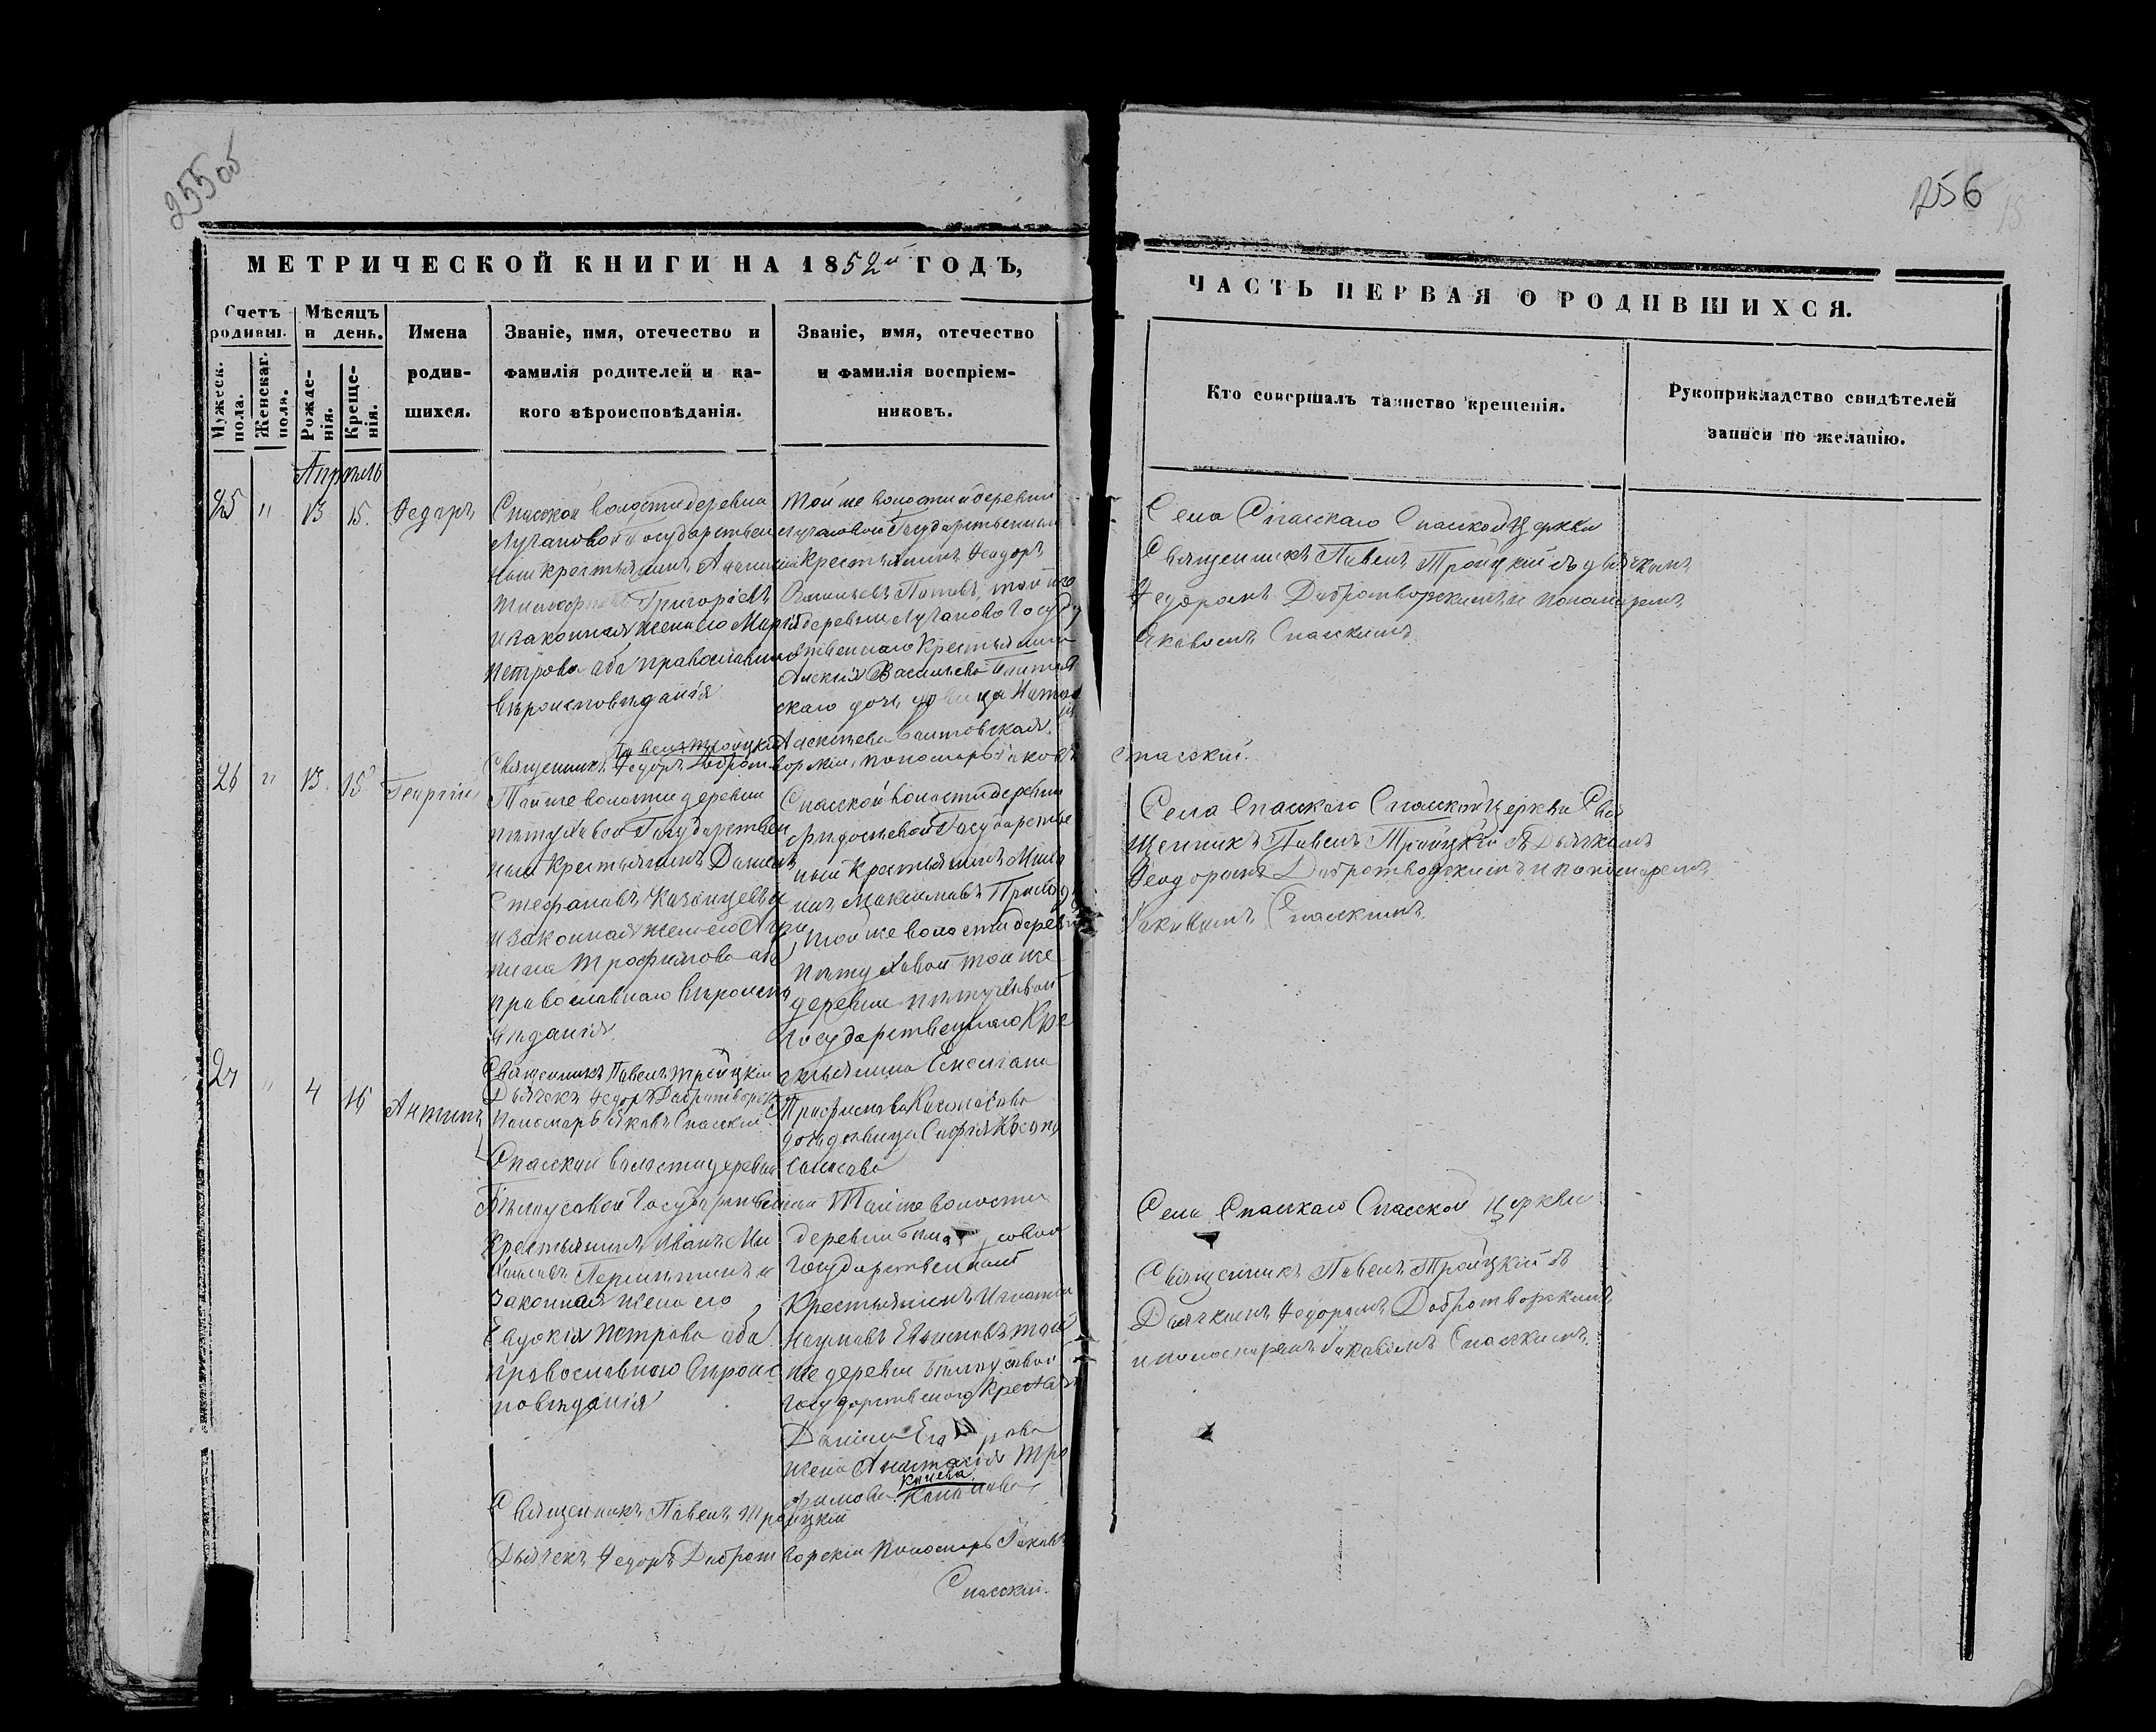 255 об
256
МЕТРИЧЕСКОЙ КНИГИ НА 1852й ГОДЪ,
ЧАСТЬ ПЕРВАЯ О РОДИВШИХСЯ.
Счетъ родивш.
Мужеск. пола.
Женскаг. пола.
Мѣсяцъ и день.
Рожде-
нія.
Креще-
нія.
Имена
родив-
шихся.
Званіе, имя, отечество и
фамилія родителей и ка-
кого вѣроисповѣданія.
Званіе, имя, отечество
и фамилія воспріем-
никовъ.
Кто совершалъ таинство крещенія.
Рукоприкладство свидѣтелей
записи по желанію.
Апрѣль
25 " 13 15. Федоръ
Спаской волости деревни
Лучановой Государствен
ный крестьянинъ
Григорьевъ
и законная жена его Марья
Петрова оба православнаго
вѣроисповѣданія
Той же волости и деревни
Лучановой Государственный
крестьянинъ Феодоръ
той же
деревни Лучаново Госуда
рственнаго крестьянина
Алексѣя Васильева
скаго дочь девица
Села Спаскаго Спаской Церкви
Священникъ Павелъ Троицкій съ дьячкомъ
Федоромъ Добротворскимъ и пономаремъ
Яковомъ Спаскимъ
Павелъ Троицкій
Священникъ Федоръ Добротворскій, пономарь Іаковъ Спасскій.
26 " 13. 15 Георгій
Той же волости деревни
Пѣтуховой Государствен
ный крестьянинъ Данилъ
Стефановъ Казанцевъ
и законная жена его Агри
пина Трофимова оба
православнаго вѣроиспо
вѣданія
Спаской волости деревни
Федосеевой Государстве
ный крестьянинъ
Максимовъ
той же волости деревни
Пѣтуховой той же
деревни Пѣтуховой
Государственнаго Кре
стьянина
Трофимова
дочь девица Софія
Села Спаскаго Спаской Церкви Свя
щенникъ Павелъ Троицкій съ Дьячкомъ
Феодоромъ Добротворскимъ и пономаремъ
Іаковымъ Спаскимъ
Священникъ Павелъ Троицкій
Дьячекъ Федоръ Добротворск.
Пономарь Яковъ Спаскій
27 " 4 16 Антипъ
Спаской волости деревни
Бѣлоусовой Государственный
Крестьянинъ Иванъ Ми
хайловъ и
законная жена его
Евдокія Петрова оба
православнаго вѣроис
повѣданія
Той же волости
деревни
Государственный
Крестьянинъ Игнатій
Наумовъ той
же деревни Бѣлоусовой
Государственаго
Данила
жена Анастасія Тро
фимова
Села Спаскаго Спаской Церкви
Священникъ Павелъ Троицкій съ
Дьячкомъ Федоромъ Добротворскимъ
и пономаремъ Іаковомъ Спаскимъ
Священникъ Павелъ Троицкій
Дьячекъ Федоръ Добротворскій Пономарь Іаковъ
Спасскій.